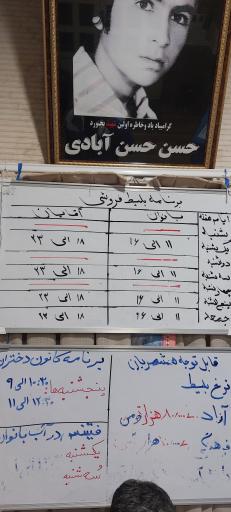 گرامیباد یاد و خاطره اولین شهید بجنورد
حسن حسن آبادی
برنامه بلیط فروشی
ایام هفته بانوان آقایان
شنبه
یکشنبه ۱۱ الی ۱۶ ۱۸ الی ۲۳
دوشنبه
سه شنبه ۱۱ الی ۱۶ ۱۸ الی ۲۳
چهارشنبه
پنجشنبه ۱۱ الی ۱۶ ۱۸ الی ۲۳
جمعه ۱۱ الی ۱۶ ۱۸ الی ۲۳
قابل توجه همشهریان
نرخ بلیط
آزاد هزار تومان
فرهنگی هزار
برنامه کانون دختران
پنجشنبه ها: ۱۰:۳۰ الی ۹
۱۲:۳۰ الی ۱۱
فیتنس در آب بانوان
یکشنبه
سه شنبه